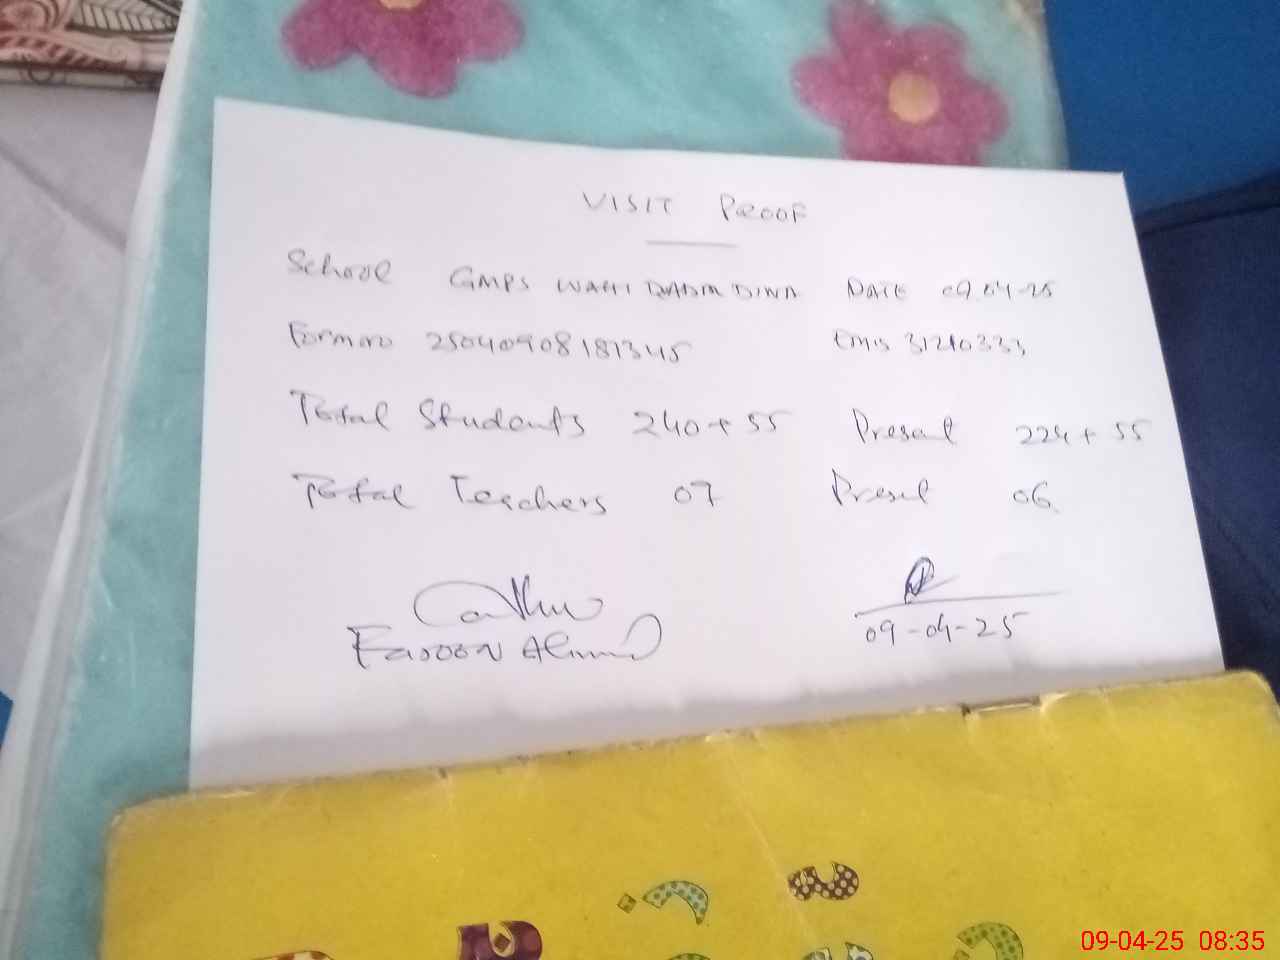 VISIT PROOF
School GMPS WAHI DATE 09.04-25
Formno 25040908181345 Emis 31210333
Total Students 240 + 55 Present 224 + 55
Total Teachers 07 Present 06
Farooq Ahmad 09-04-25
09-04-25 08:35